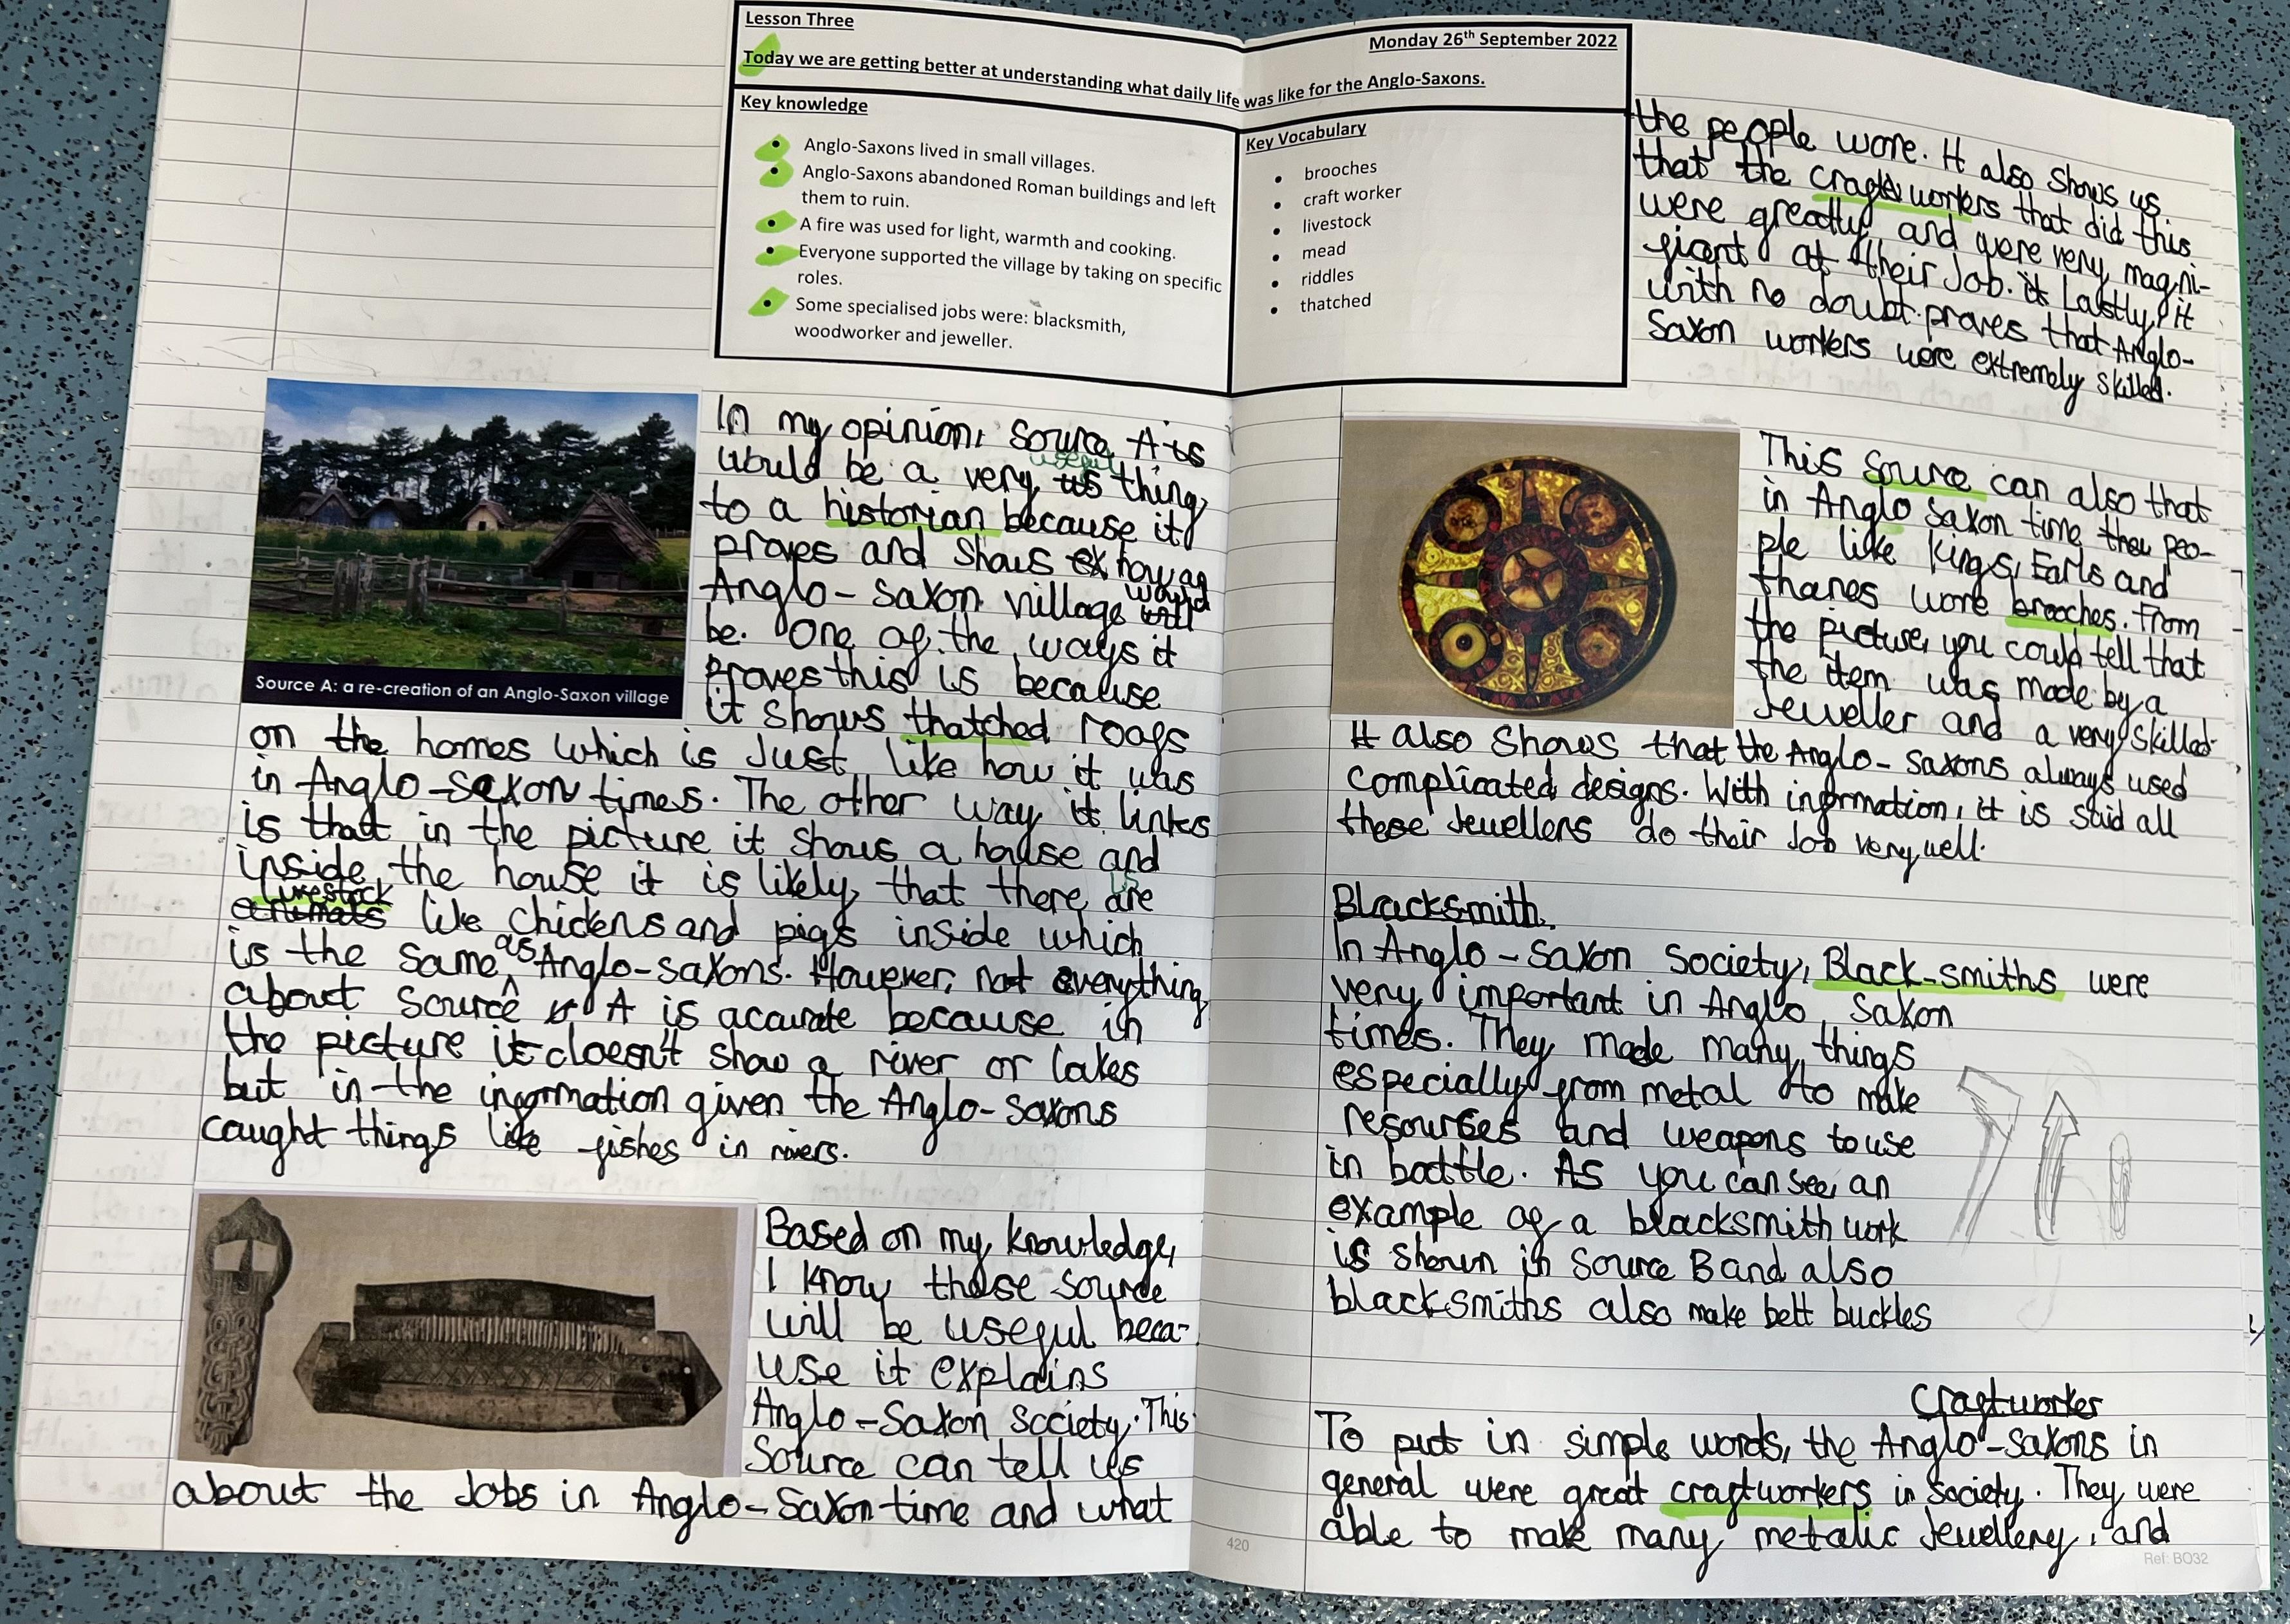 Lesson Three
Monday 26th September 2022
Today we are getting better at understanding what daily life was like for the Anglo-Saxons.
Key knowledge
Anglo-Saxons lived in small villages.
Anglo-Saxons abandoned Roman buildings and left
them to ruin.
A fire was used for light, warmth and cooking.
Everyone supported the village by taking on specific
roles.
Some specialised jobs were: blacksmith,
woodworker and jeweller.
Key Vocabulary
brooches
craft worker
livestock
mead
riddles
thatched
In my opinion, source A is
would be a very us useful thing
to a historian because it
proves and shows ex how an
Anglo-Saxon village will would
be. One of the ways it
proves this is because
it shows thatched roofs
on the homes which is Just like how it was
in Anglo-Saxon times. The other way it links
is that in the picture it shows a house and
inside the house it is likely that there are is
animals livestock like chickens and pigs inside which
is the same as Anglo-Saxons. However, not everything
about source A is acurate because in
the picture it doesn't show a river or lakes
but in the information given the Anglo-Saxons
caught things like fishes in rivers.
Source A: a re-creation of an Anglo-Saxon village
Based on my knowledge,
I know these source
will be useful beca-
use it explains
Anglo-Saxon society. This
source can tell us
about the Jobs in Anglo-Saxon time and what
the people wore. It also shows us
that the craftworkers that did this
were greatly and were very magni-
ficent at their Job. it Lastly, it
with no doubt proves that Anglo-
Saxon workers were extremely skilled.
This source can also that
in Anglo Saxon time the peo-
ple like Kings, Earls and
thanes wore broaches. From
the picture, you could tell that
the item was made by a
Jeweller and a very skilled.
It also shows that the Anglo-Saxons always used
complicated designs. With information, it is said all
these Jewellers do their Job very well.
Blacksmith.
In Anglo-Saxon Society, Black-smiths were
very important in Anglo Saxon
times. They made many things
especially from metal to make
resources and weapons to use
in battle. As you can see, an
example of a blacksmith work
is shown in source B and also
blacksmiths also make belt buckles
Craftworker
To put in simple words, the Anglo-Saxons in
general were great craftworkers in society. They were
able to make many metalic Jewellery, and
420
Ref: BO32